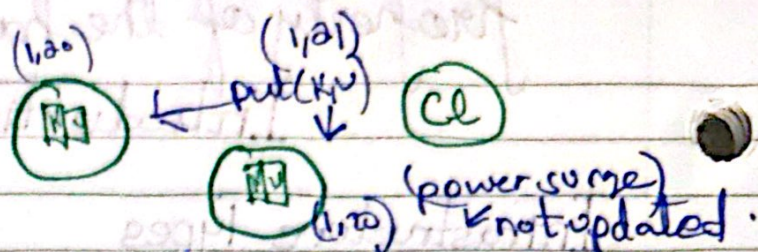 (1,20) (1,21)
put(K,V) Cl
(power surge)
(1,20) not updated.